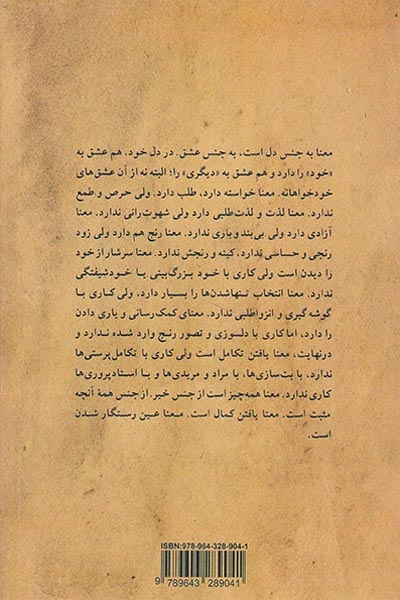 معنا به جنس دل است، به جنس عشق. در دل خود، هم عشق به
«خود» را دارد و هم عشق به «دیگری» را؛ البته نه از آن عشق‌های
خودخواهانه. معنا خواسته دارد، طلب دارد. ولی حرص و طمع
ندارد. معنا لذت و لذت‌طلبی دارد ولی شهوت‌رانی ندارد. معنا
آزادی دارد ولی بی‌بند و باری ندارد. معنا رنج هم دارد ولی زود
رنجی و حساسی ندارد، کینه و رنجش ندارد. معنا سرشار از خود
را دیدن است ولی کاری با خود بزرگ‌بینی یا خودشیفتگی
ندارد. معنا انتخاب تنها شدن‌ها را بسیار دارد، ولی کاری با
گوشه‌گیری و انزواطلبی ندارد. معنای کمک‌رسانی و یاری دادن
را دارد، اما کاری با دلسوزی و تصور رنج وارد شده ندارد و
درنهایت، معنا یافتن تکامل است ولی کاری با تکامل‌پرستی‌ها
ندارد، با بت‌سازی‌ها، با مراد و مریدی‌ها و با استادپروری‌ها
کاری ندارد. معنا همه‌چیز است از جنس خیر. از جنس همهٔ آنچه
مثبت است. معنا یافتن کمال است. معنا عین رستگار شدن
است.
ISBN:978-964-328-904-1
9 789643 289041